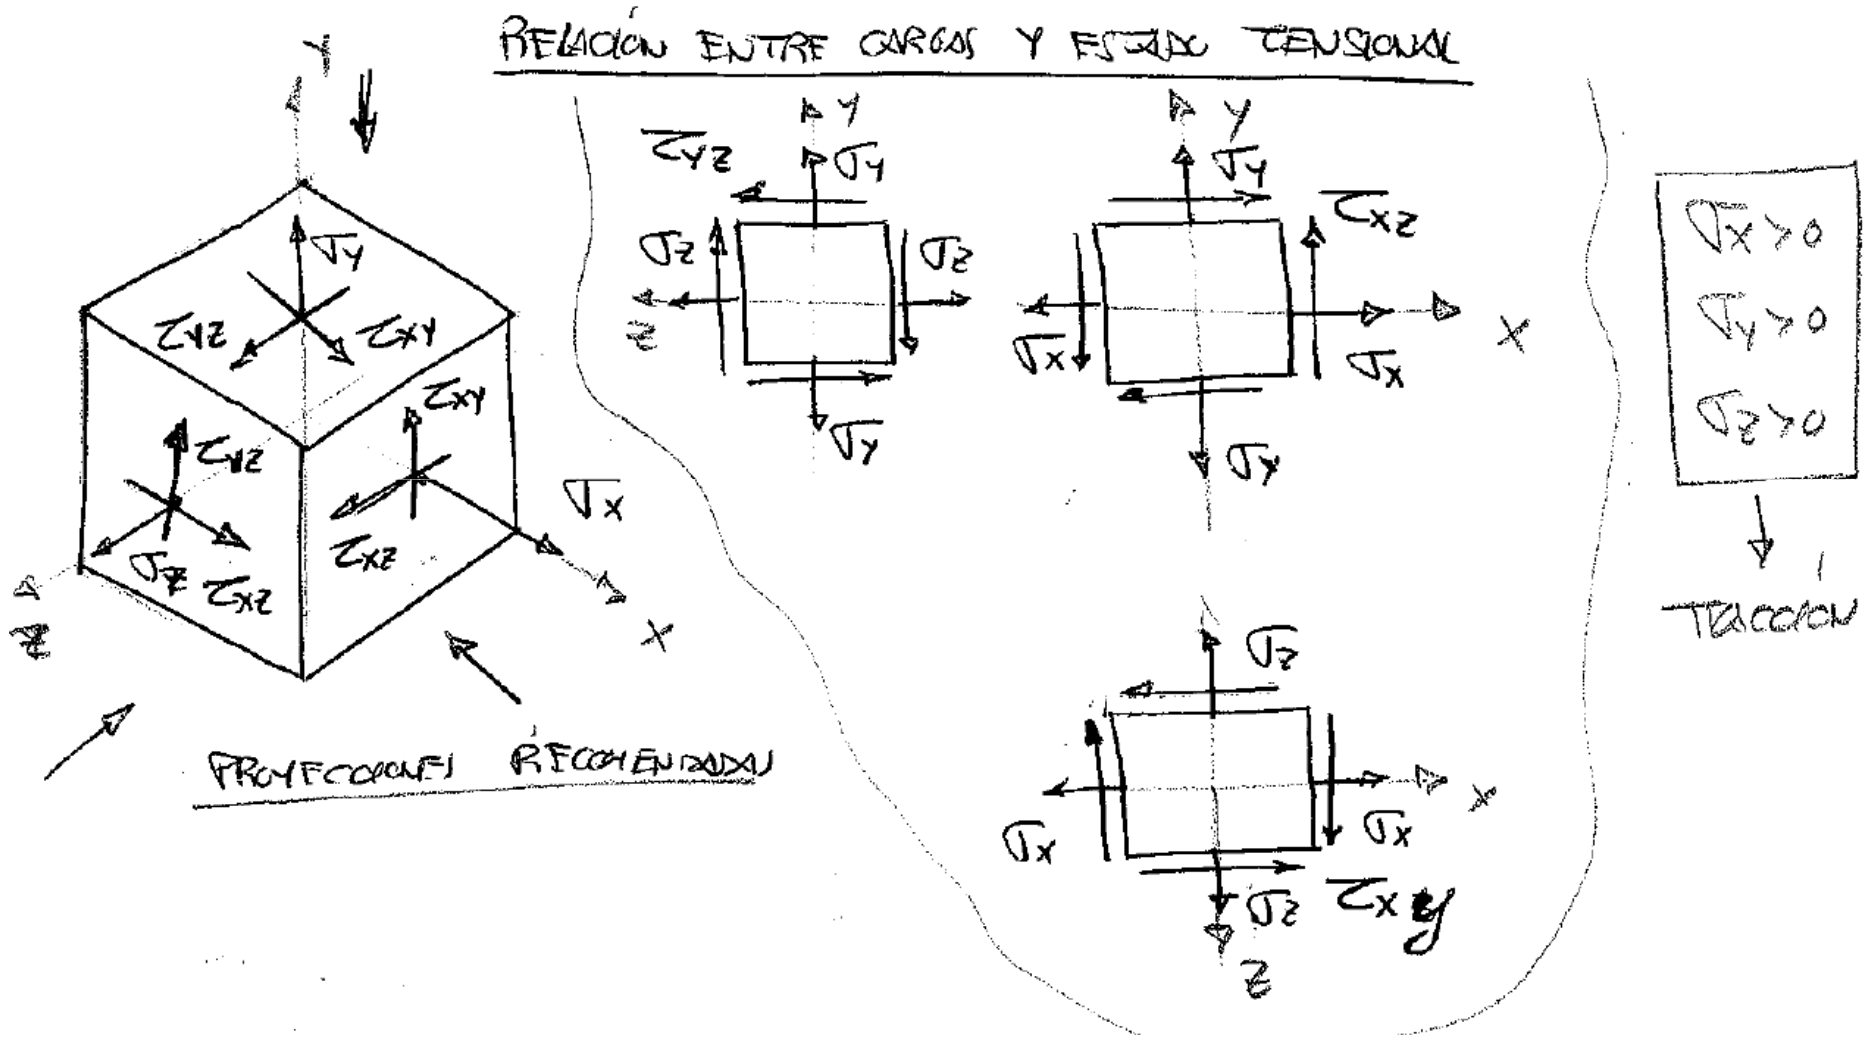 RELACIÓN ENTRE CARGAS Y ESTADO TENSIONAL
Y
σY
τYZ
τXY
τXY
τYZ
τXZ
σX
σZ
τXZ
Z
X
PROYECCIONES RECOMENDADAS
Y
τYZ
σY
σZ
σZ
Z
σY
Y
σY
τXZ
σX
σX
X
σY
σZ
X
σX
σX
σZ
τXy
Z
σX>0
σY>0
σZ>0
TRACCIÓN